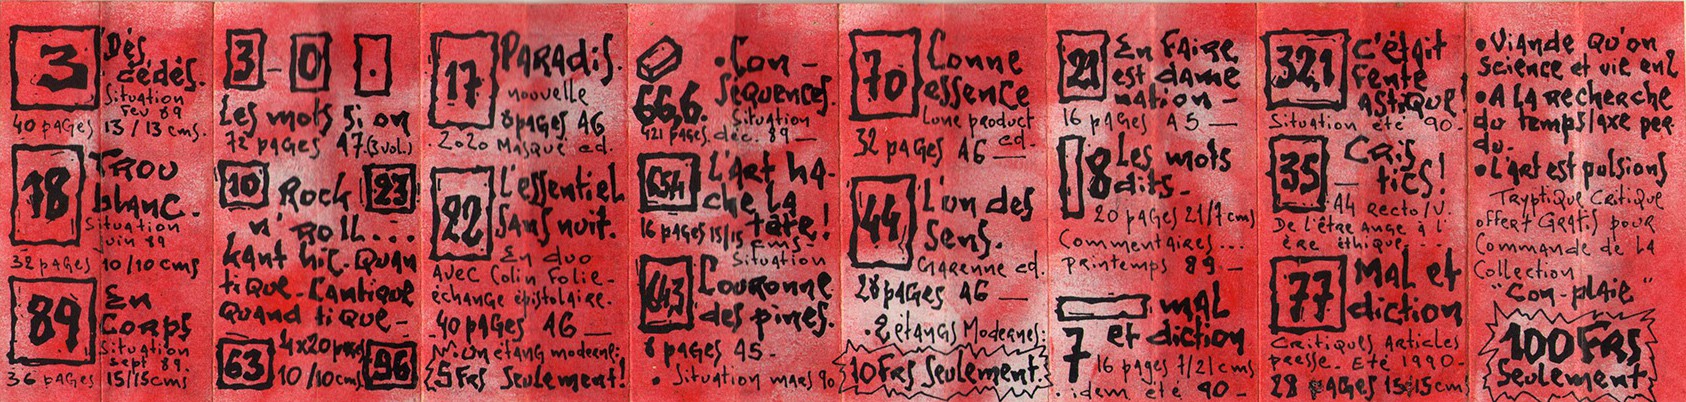 3 Dés
cédés.
Situation
fev 89
40 pages 13/13 cms.
18 Trou
blanc.
Situation
juin 89
32 pages 10/10 cms
89 En
Corps
Situation
sept 89.
36 pages 15/15 cms
3 - 0 .
Les mots si on
72 pages A7.(3 vol.)
10 Rock 23
n' Roll...
Kant hic. Quan
tique. L'antique
Quand tique -
63 4x20 pages 96
10/10 cms
17 Paradis.
nouvelle
8 pages A6
.2020 Masqué ed.
22 L'essentiel
sans nuit.
En duo
avec Colin Folie-
échange épistolaire.
40 pages A6 —
étang moderne:
5 Frs Seulement!
• Con -
Séquences.
66,6. Situation
421 pages. déc. 89 —
654 L'Art ha-
che la
tare!
16 pages 15/15 cms-
Situation
643 Couronne
des pines.
8 pages A5 -
• Situation mars 90
70 Conne
essence
Lune product
ed.
32 pages A6 —
44 L'un des
sens.
Garenne ed.
28 pages A6 —
• 2 étangs Modernes:
10 Frs Seulement
21 En Faire
est dame
nation -
16 pages A5 —
8 Les mots
dits -
20 pages 21/7 cms
Commentaires ...
printemps 89 -
mal
7 et diction
16 pages 7/21 cms
. idem été 90 -
321 C'était
Fente
astique
Situation été 90 -
35 Cris
— tics!
A4 recto/v.
De l'être ange à l'
ère éthique...
77 Mal et
diction
Critiques Articles
presse. Eté 1990-
28 pages 15/15 cms
• Viande qu'on
science et vie en 2
• A la recherche
du temps/axe per
du.
• L'art est pulsions
Tryptique Critique
offert Gratis pour
Commande de la
Collection
"Con-plaie"
100 Frs
Seulement